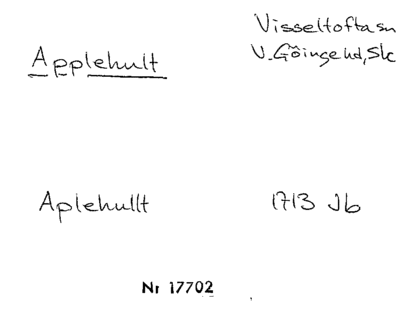 Visseltofta sn
Applehult V. Göinge hd, Sk
Aplehullt 1713 Jb
Nr 17702